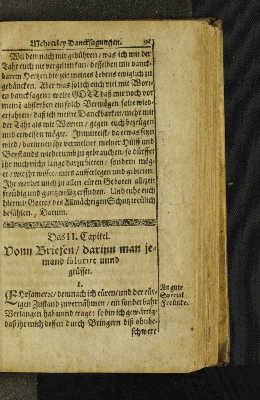 Mehrerley Dancksagungen.
Was den nach mir gebühren / was ich mit der
That euch nie vergelten kan / desselben mit danck-
barem Hertzen die zeit meines Lebens ewiglich zu
gedäncken. Aber was soll ich euch viel mit Wor-
ten dancksagen: wolte GOTT daß mir noch vor
meinem absterben ein solch Vermögen solte wied-
erfahren / daß ich meine Danckbarkeit / mehr mit
der That als mit Worten / gegen euch bezeugen
und erweisen mögte. Immittelst / da etwas seyn
wird / darinnen ihr vermeinet meiner Hülff und
Verstands wiederumb zu gebrauchen / so dürffet
ihr mich nicht lange darzu bitten / sondern mög-
et / wie ihr wisset / mir es aufferlegen und gebieten.
Ihr werdet mich zu allen euren Geboten allezeit
freudig und gantz willig erfinden. Und thue euch
hiermit Gottes des Allmächtigen Schutz treulich
befählen. Datum.
Das II. Capitel.
Vonn Briefen / darinn man je-
mand salutirt unnd
grüsset.
1.
Ehrsamer etc. demnach ich euren / und der eur-
igen Zustand zuvernähmen / ein sonderbahr
Verlangen hab und trage: so bin ich gewärtig /
daß ihr mich dessen durch Bringern diß ohnbe-
schwert
An gute
Special
Freunde.